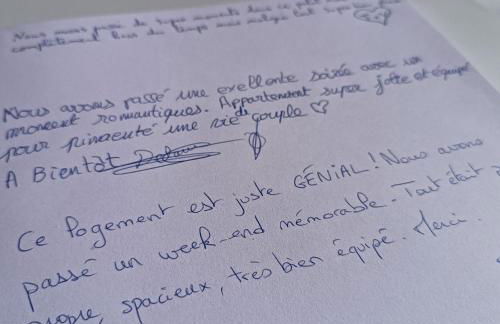 Nous avons passé de super moments dans ce petit
complètement hors du temps mais malgré tout super
Nous avons passé une exellente soirée avec un
moment romantiques. Appartement super jolie et équipé
pour pimenté une vie di couple ♡
A Bientôt
Ce logement est juste GÉNIAL! Nous avons
passé un week-end mémorable. Tout était
propre, spacieux, très bien équipé. Merci.